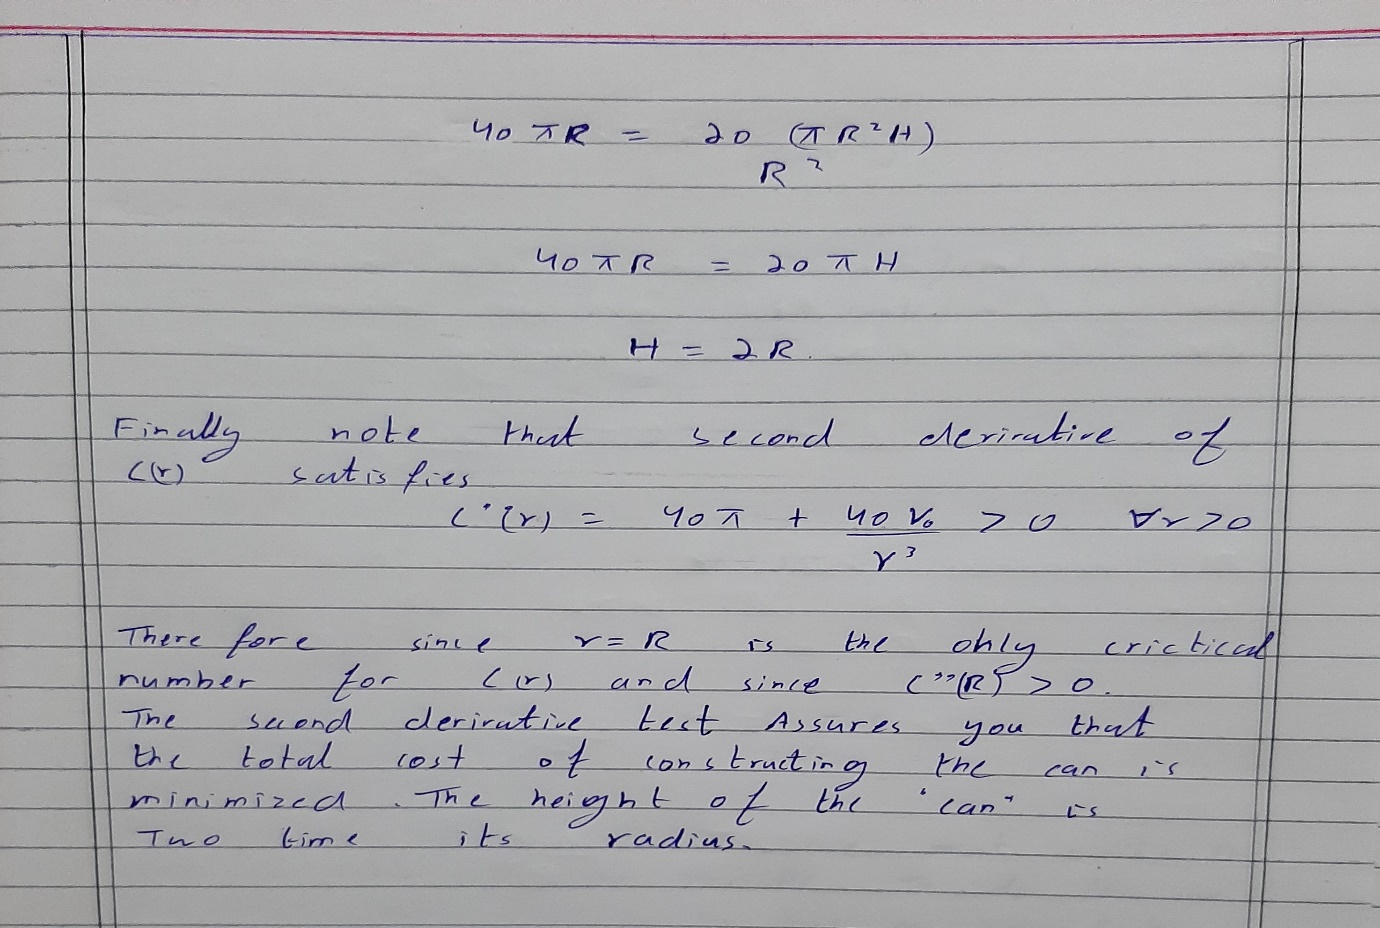 40 πR = 20 (πR²H)
R²
40 πR = 20 π H
H = 2R.
Finally note that second derivative of
C(r) satisfies
C"(r) = 40π + 40 V₀ > 0 ∀r>0
r³
There fore since r = R is the only crictical
number for C(r) and since C"(R) > 0.
The second derivative test Assures you that
the total cost of constructing the can is
minimized. The height of the "can" is
Two time its radius.